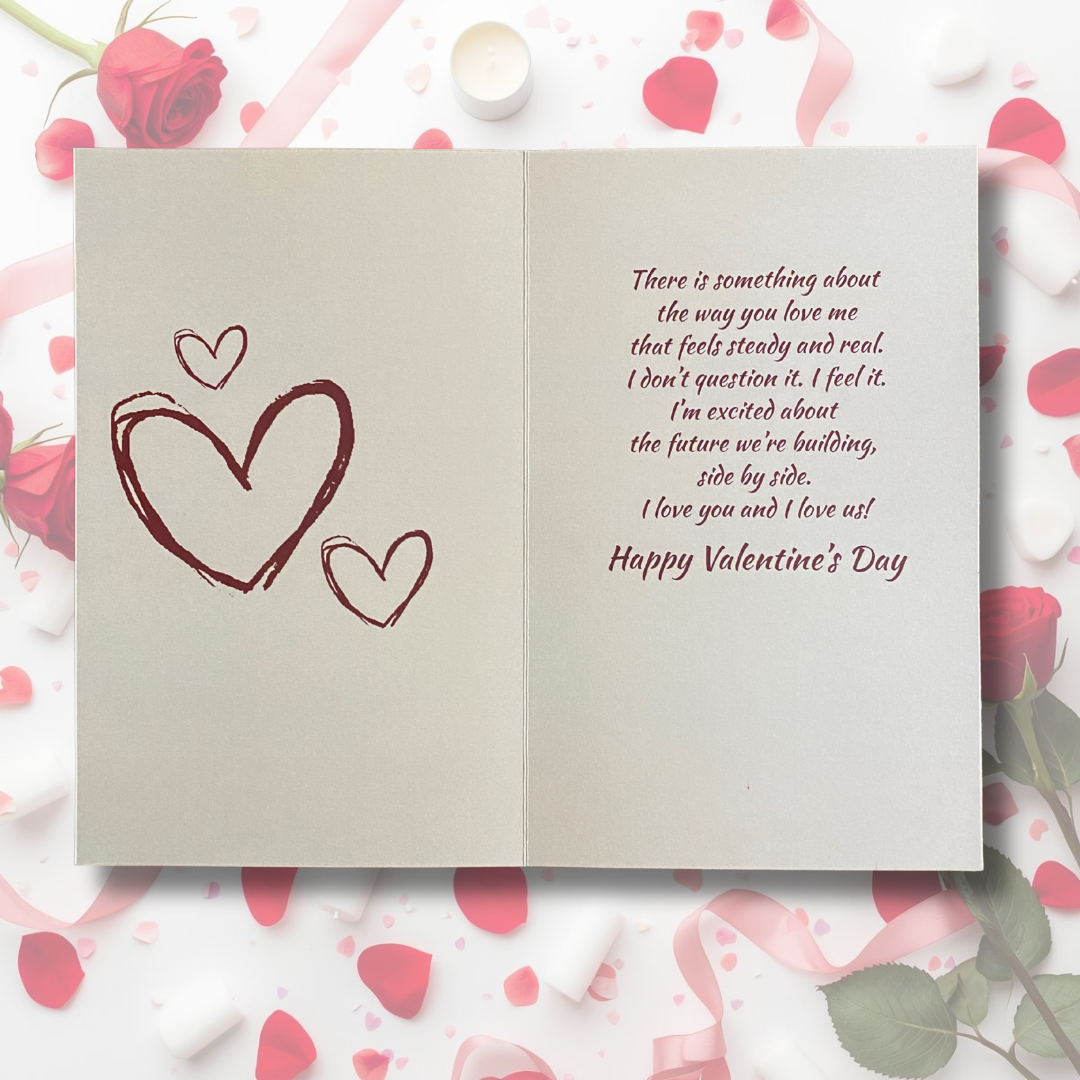 There is something about
the way you love me
that feels steady and real.
I don't question it. I feel it.
I'm excited about
the future we're building,
side by side.
I love you and I love us!
Happy Valentine's Day